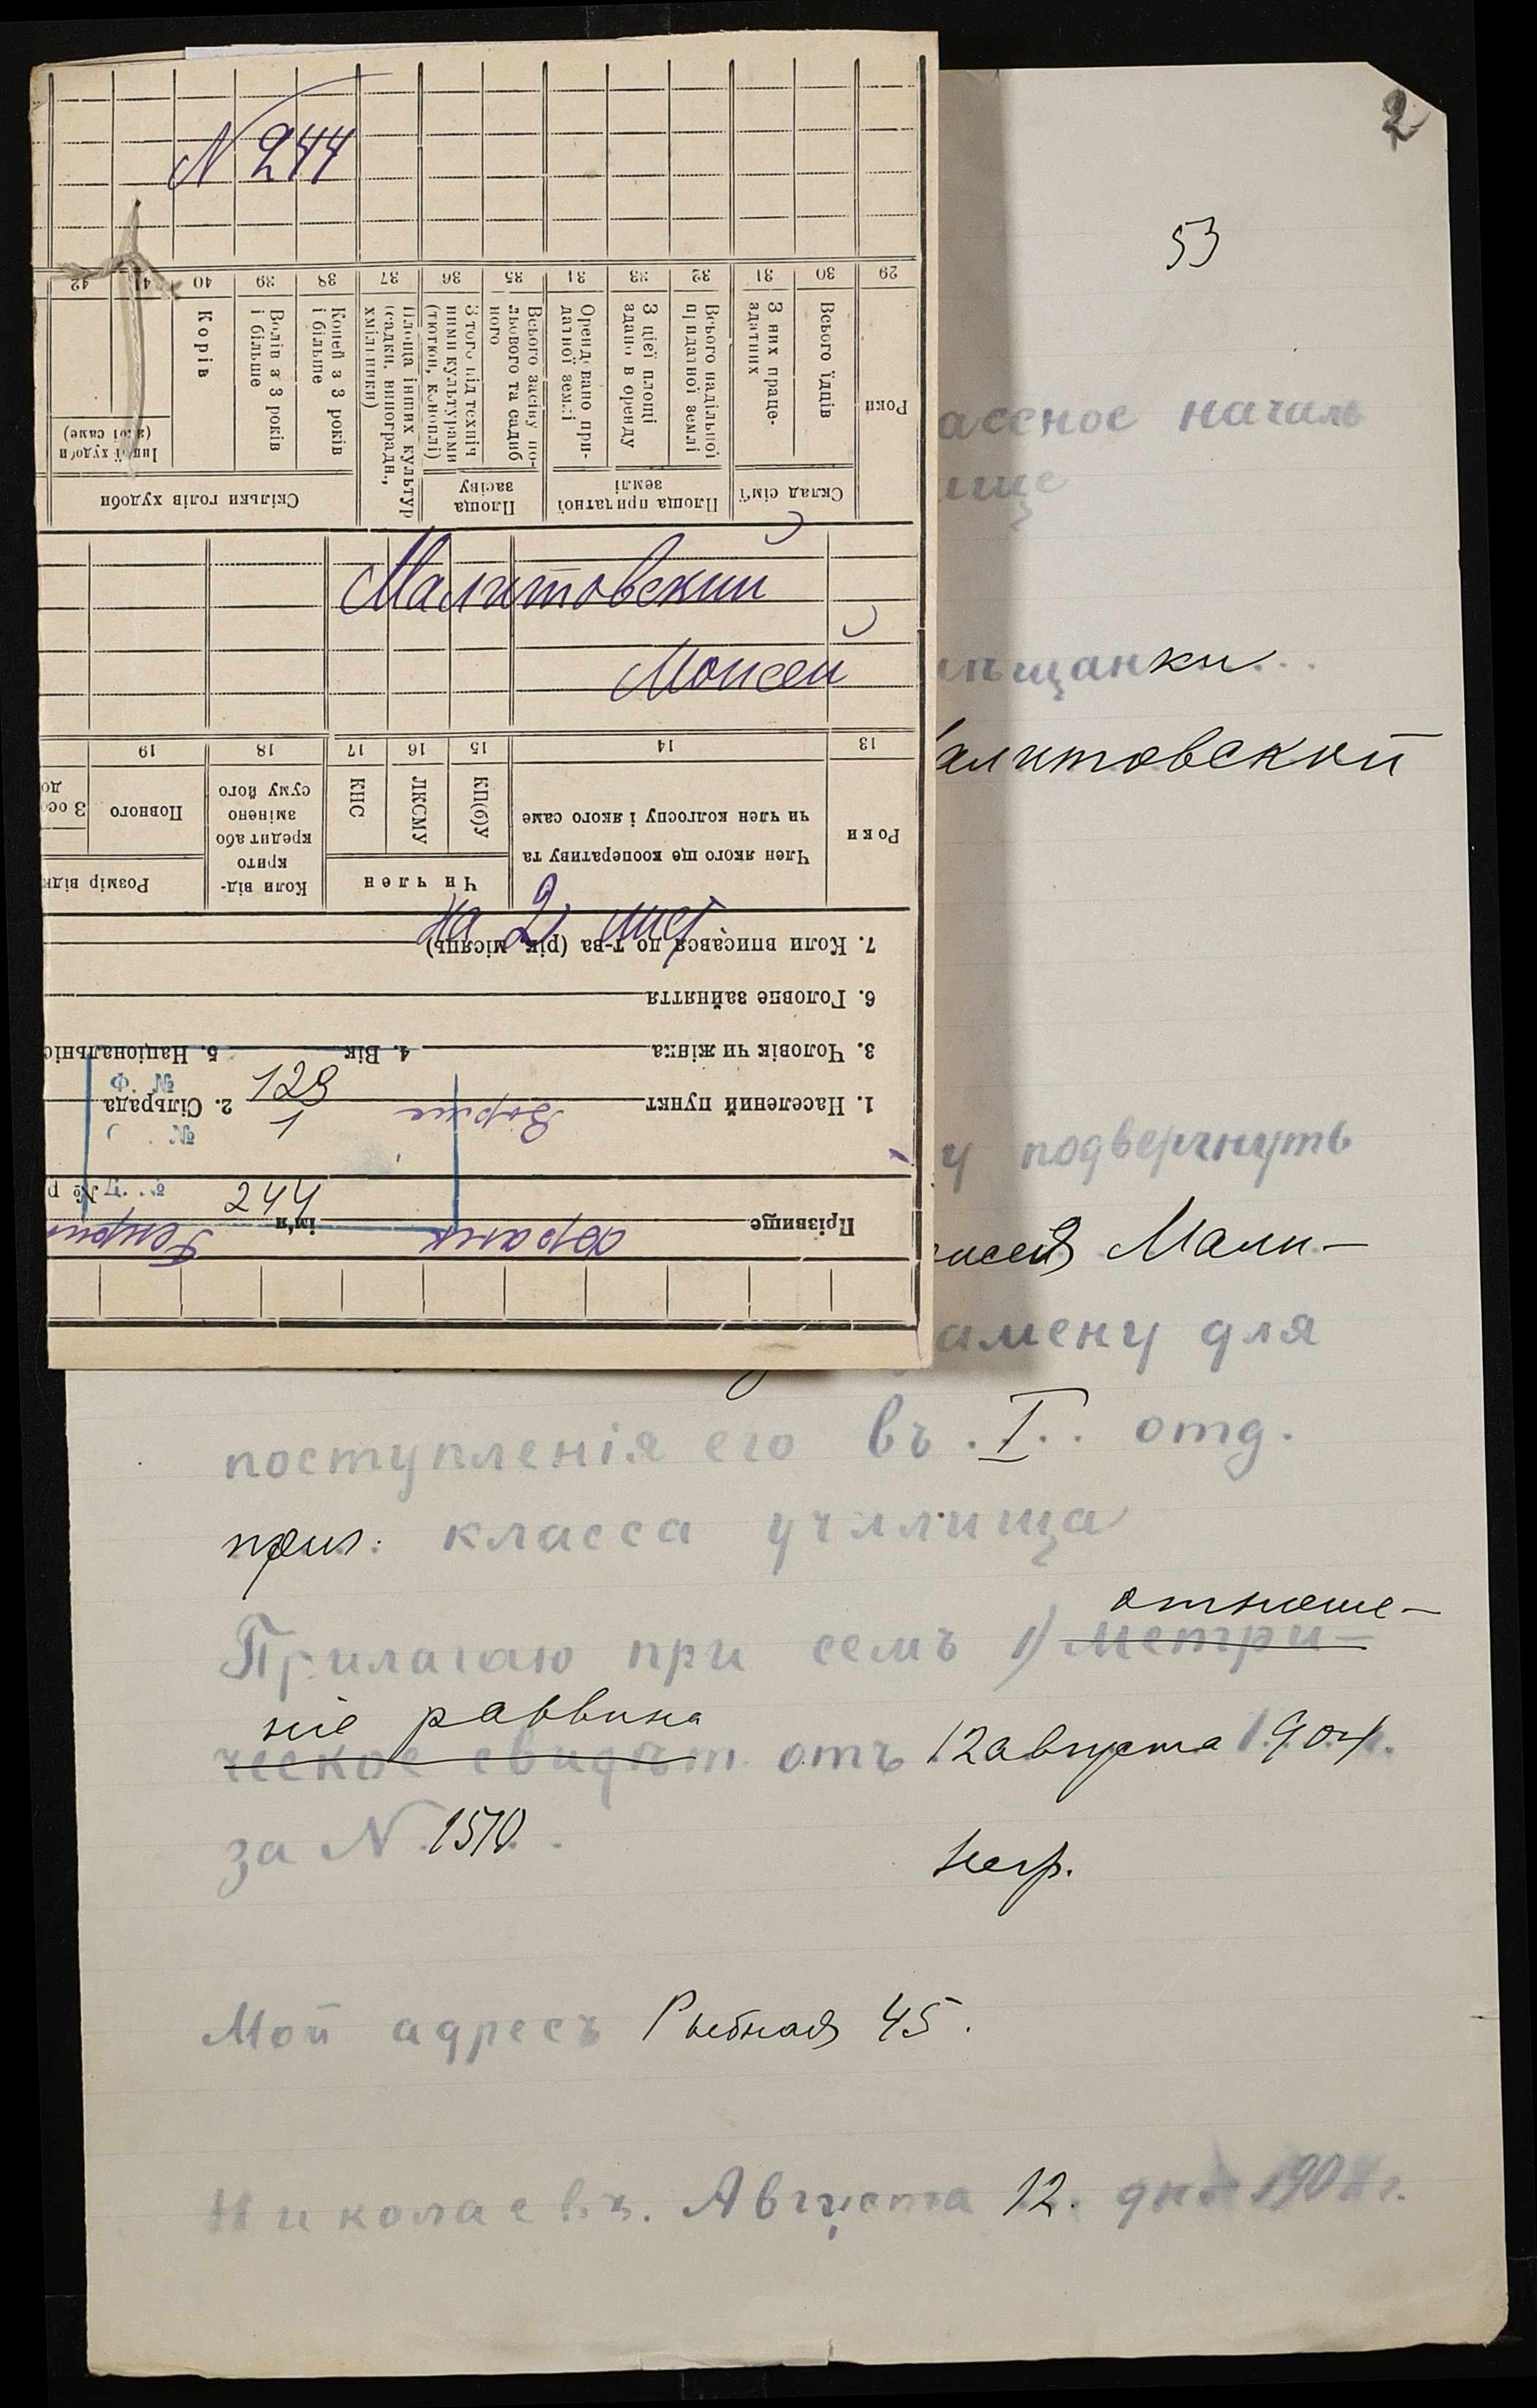 2
53
N 244
Малитовский
Моисей
на 2 лист
129
1
244
29
30
31
32
33
34
35
36
37
38
39
40
42
Роки
Всього їдців
З них праце-здатних
Всього надільної придатної землі
З цієї площі здано в оренду
Орендовано придатної землі
Всього засіву польового та садибного
З того під технічними культурами (тютюн, коноплі)
Площа інших культур (садки, виноградн., хмільники)
Коней з 3 років і більше
Волів з 3 років і більше
Корів
Іншої худоби (якої саме)
Склад сім'ї
Площа придатної землі
Площа засіву
Скільки голів худоби
13
14
15
16
17
18
19
Роки
Член якого ще кооперативу та чи член колгоспу і якого саме
КП(б)У
ЛКСМУ
КНС
Чи член
Коли відкрито кредит або змінено суму його
Повного
Розмір відк
7. Коли вписався до т-ва (рік, місяць)
6. Головне зайняття
3. Чоловік чи жінка
4. Вік
5. Національніс
1. Населений пункт
2. Сільрада
Прізвище
ім'я
ассное началь
ище
щанки
алитовской
у подвергнуть
исея Мали-
амену для
поступленія его въ I отд.
приг. класса училища
отноше-
Прилагаю при семъ 1) метри-
ніе раввина
ческое свидѣт. отъ 12 августа 1904 г.
за N 1510
Мой адресъ Рыбная 45.
Николаевъ. Августа 12 дня 1904 г.